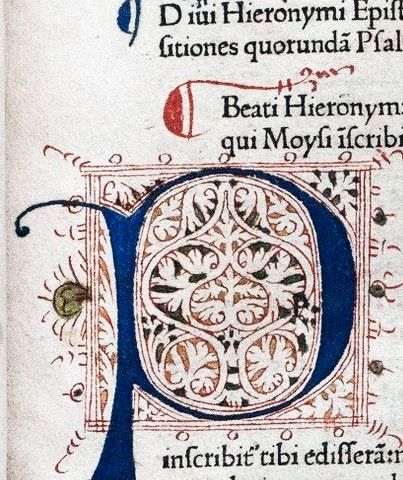 D iui Hieronymi Epist
sitiones quorundā Psal
Beati Hieronym
qui Moysi īscribi
P
inscribit tibi edisserā:n